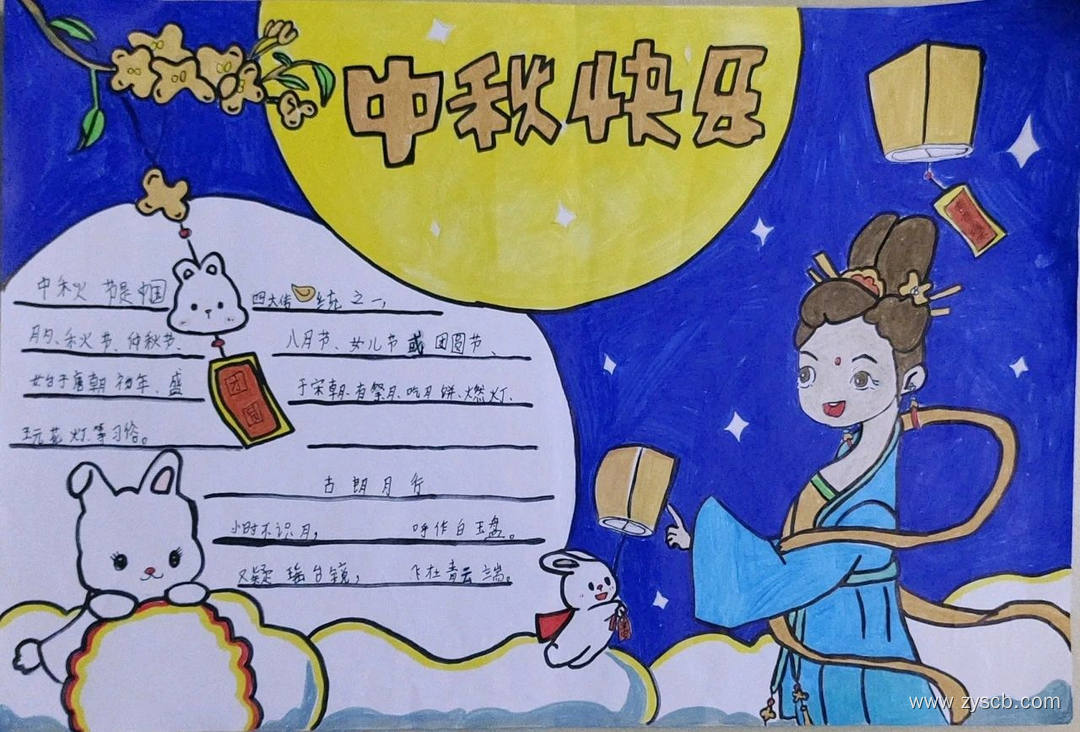 中秋快乐
中秋 节是中国 四大传统 之一,
月夕、秋节、仲秋节、 八月节、女儿节或 团圆节、
始于唐朝初年、盛 于宋朝.有祭月、吃月饼、燃灯、
玩花灯等习俗。
团圆
古朗月行
小时不识月, 呼作白玉盘。
又疑瑶台镜, 飞在青云端。
www.zyscb.com